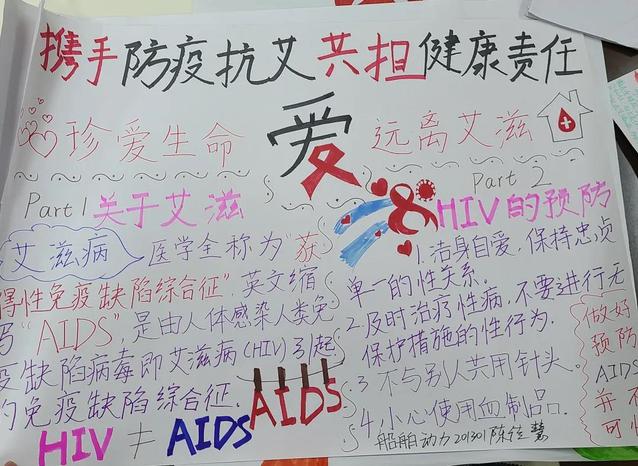 携手防疫抗艾共担健康责任
珍爱生命
爱
远离艾滋
Part 1 关于艾滋
艾滋病 医学全称为“获
得性免疫缺陷综合征”,英文缩
写“AIDS”,是由人体感染人类免
疫缺陷病毒即艾滋病(HIV)引起
的免疫缺陷综合征.
HIV ≠ AIDS
AIDS
Part 2
HIV的预防
1. 洁身自爱,保持忠贞
单一的性关系.
2. 及时治疗性病,不要进行无
保护措施的性行为.
3 不与别人共用针头.
4. 小心使用血制品.
做好
预防
AIDS
并不
可怕
船舶动力201301